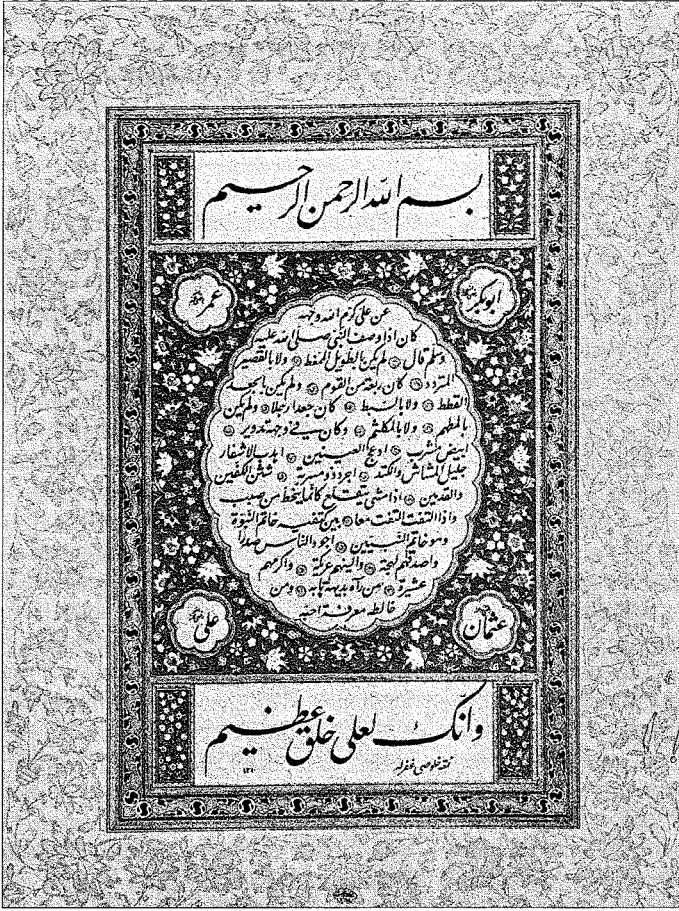 بسم الله الرحمن الرحيم
ابوبكر
عمر
عن علي كرم الله وجهه
كان اذا وصف النبي صلى الله عليه
وسلم قال لم يكن بالطويل الممغط ولا بالقصير
المتردد كان ربعة من القوم ولم يكن بالجعد
القطط ولا بالسبط كان جعدا رجلا ولم يكن
بالمطهم ولا بالمكلثم وكان في وجهه تدوير
ابيض مشرب ادعج العينين اهدب الاشفار
جليل المشاش والكتد اجرد ذو مسربة شثن الكفين
والقدمين اذا مشى يتقلع كانما ينحط من صبب
واذا التفت التفت معا بين كتفيه خاتم النبوة
وهو خاتم النبيين اجود الناس صدرا
واصدقهم لهجة والينهم عريكة واكرمهم
عشيرة من رآه بديهة هابه ومن
خالطه معرفة احبه
عثمان
علي
وانك لعلى خلق عظيم
غفرله